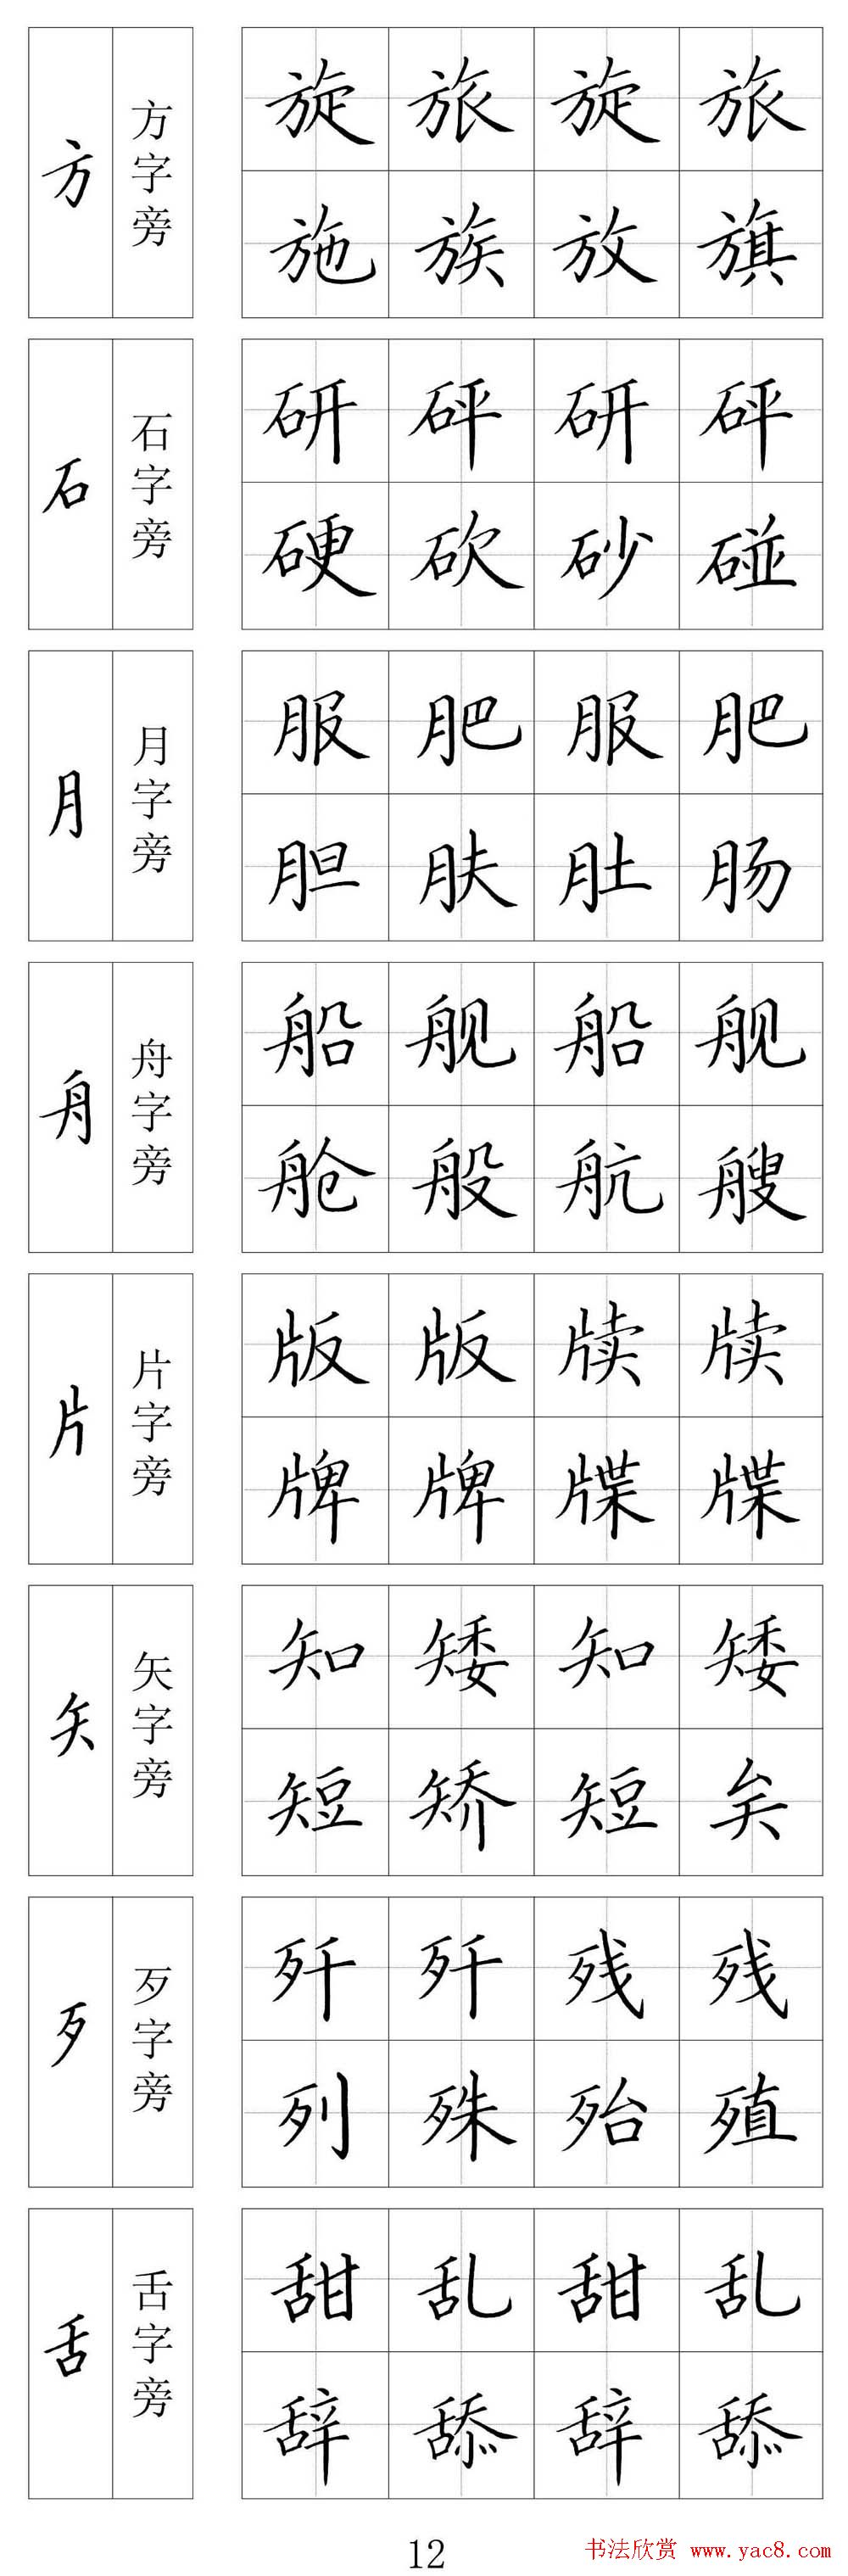 方 方字旁
旋 旅 旋 旅
施 族 放 旗
石 石字旁
研 砰 研 砰
硬 砍 砂 碰
月 月字旁
服 肥 服 肥
胆 肤 肚 肠
舟 舟字旁
船 舰 船 舰
舱 般 航 艘
片 片字旁
版 版 牍 牍
牌 牌 牒 牒
矢 矢字旁
知 矮 知 矮
短 矫 短 矣
歹 歹字旁
歼 歼 残 残
列 殊 殆 殖
舌 舌字旁
甜 乱 甜 乱
辞 舔 辞 舔
12
书法欣赏 www.yac8.com